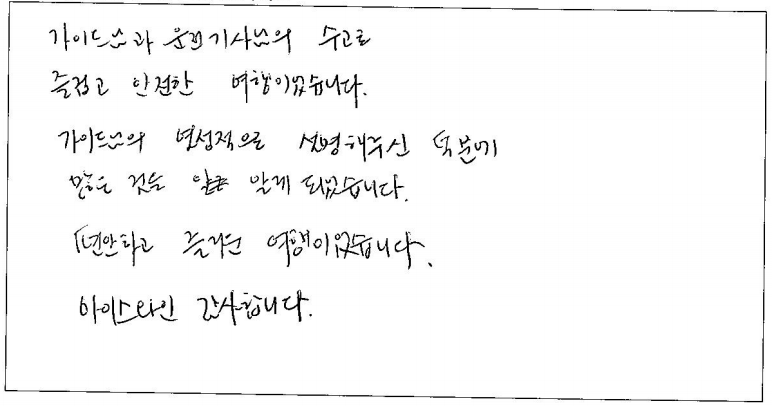 가이드님과 운전기사님의 수고로
즐겁고 안전한 여행이었습니다.
가이드님의 열성적으로 설명해주신 덕분에
많은 것을 알게 되었습니다.
편안하고 즐거운 여행이었습니다.
아이스라인 감사합니다.